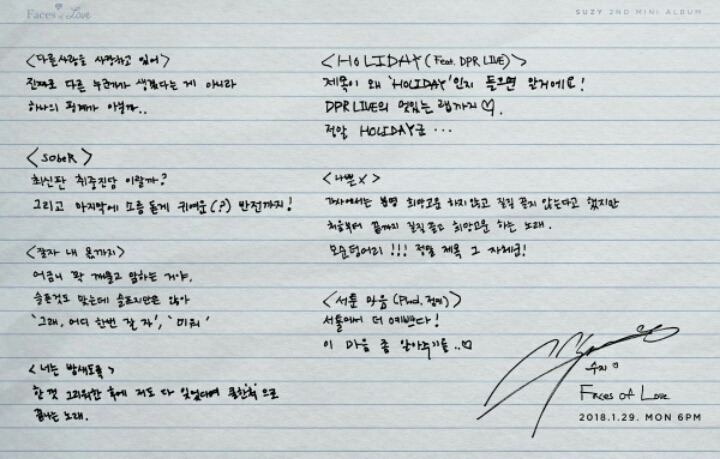 Faces of Love
SUZY 2ND MINI ALBUM
<다른사람을 사랑하고 있어>
진짜로 다른 누군가가 생겼다는 게 아니라
하나의 핑계가 아닐까..
<SObeR>
최신판 취중진담 이랄까?
그리고 마지막에 소름 돋게 귀여운(?) 반전까지!
<잘자 내 몫까지>
어금니 꽉 깨물고 말하는 거야.
슬픈것도 맞는데 슬프지만은 않아
'그래, 어디 한번 잘 자', '미워'
<너는 밤새도록>
한껏 그리워한 후에 저도 다 잊었다며 쿨한척으로
끝나는 노래.
<HOLIDAY (Feat. DPR LIVE)>
제목이 왜 'HOLIDAY'인지 들으면 알거에요!
DPR LIVE의 멋있는 랩까지♡.
정말 HOLIDAY긋...
<나쁜X>
가사에서는 분명 희망고문 하지않고 질질 끌지 않는다고 했지만
처음부터 끝까지 질질 끌고 희망고문 하는 노래.
모순덩어리!!! 정말 제목 그 자체군!
<서툰 마음 (Prod. 정미)>
서툴에서 더 예쁘다!
이 마음 좀 알아주기를..♡
수지
Faces of Love
2018.1.29. MON 6PM